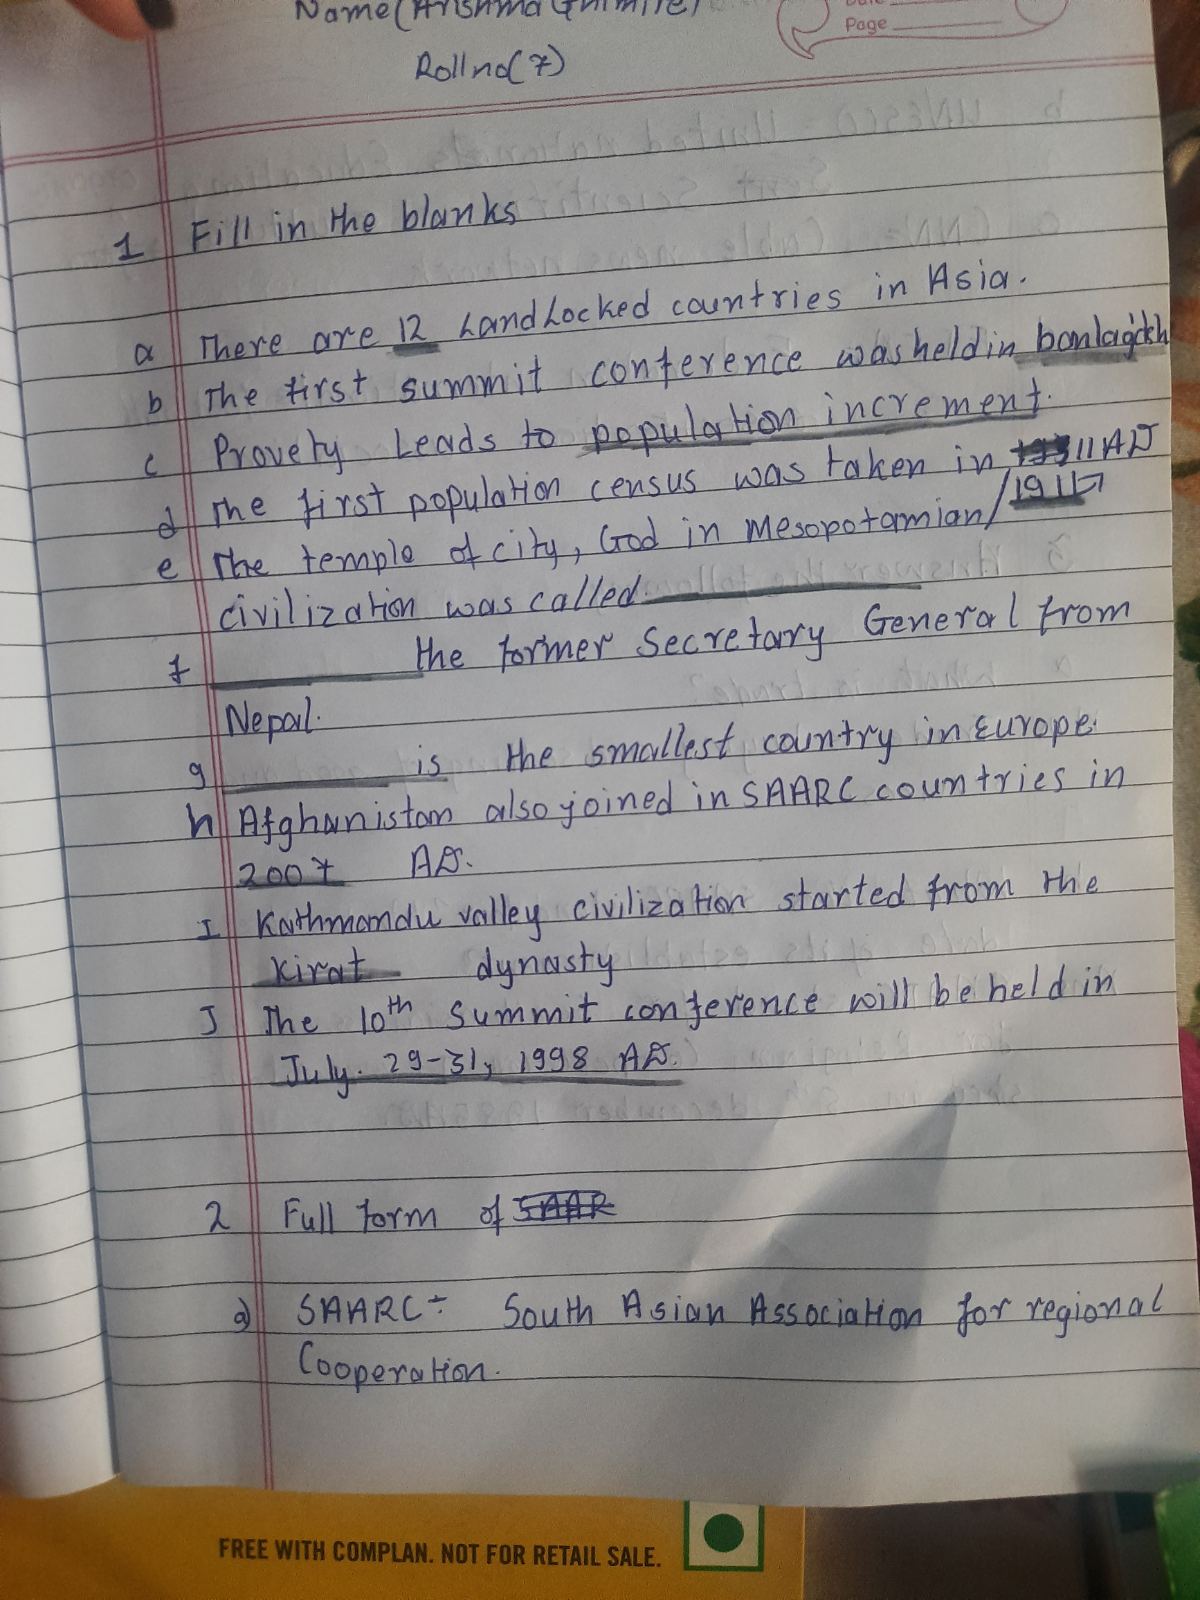 Name(Arishma Ghimire)
Page
Rollno(7)
1 Fill in the blanks
a There are 12 LandLocked countries in Asia.
b The first summit conference was held in
c Provety Leads to population increment.
d The first population census was taken in 11 AD
/1911
e The temple of city, God in Mesopotamian
civilization was called.
f the former Secretary General from
Nepal.
g is the smallest country in Europe.
h Afghanistan also joined in SAARC countries in
2007 AD.
I Kathmandu valley civilization started from the
Kirat dynasty
J The 10th Summit conference will be held in
July. 29-31, 1998 AD.
2 Full form of
a) SAARC÷ South Asian Association for regional
Cooperation.
FREE WITH COMPLAN. NOT FOR RETAIL SALE.